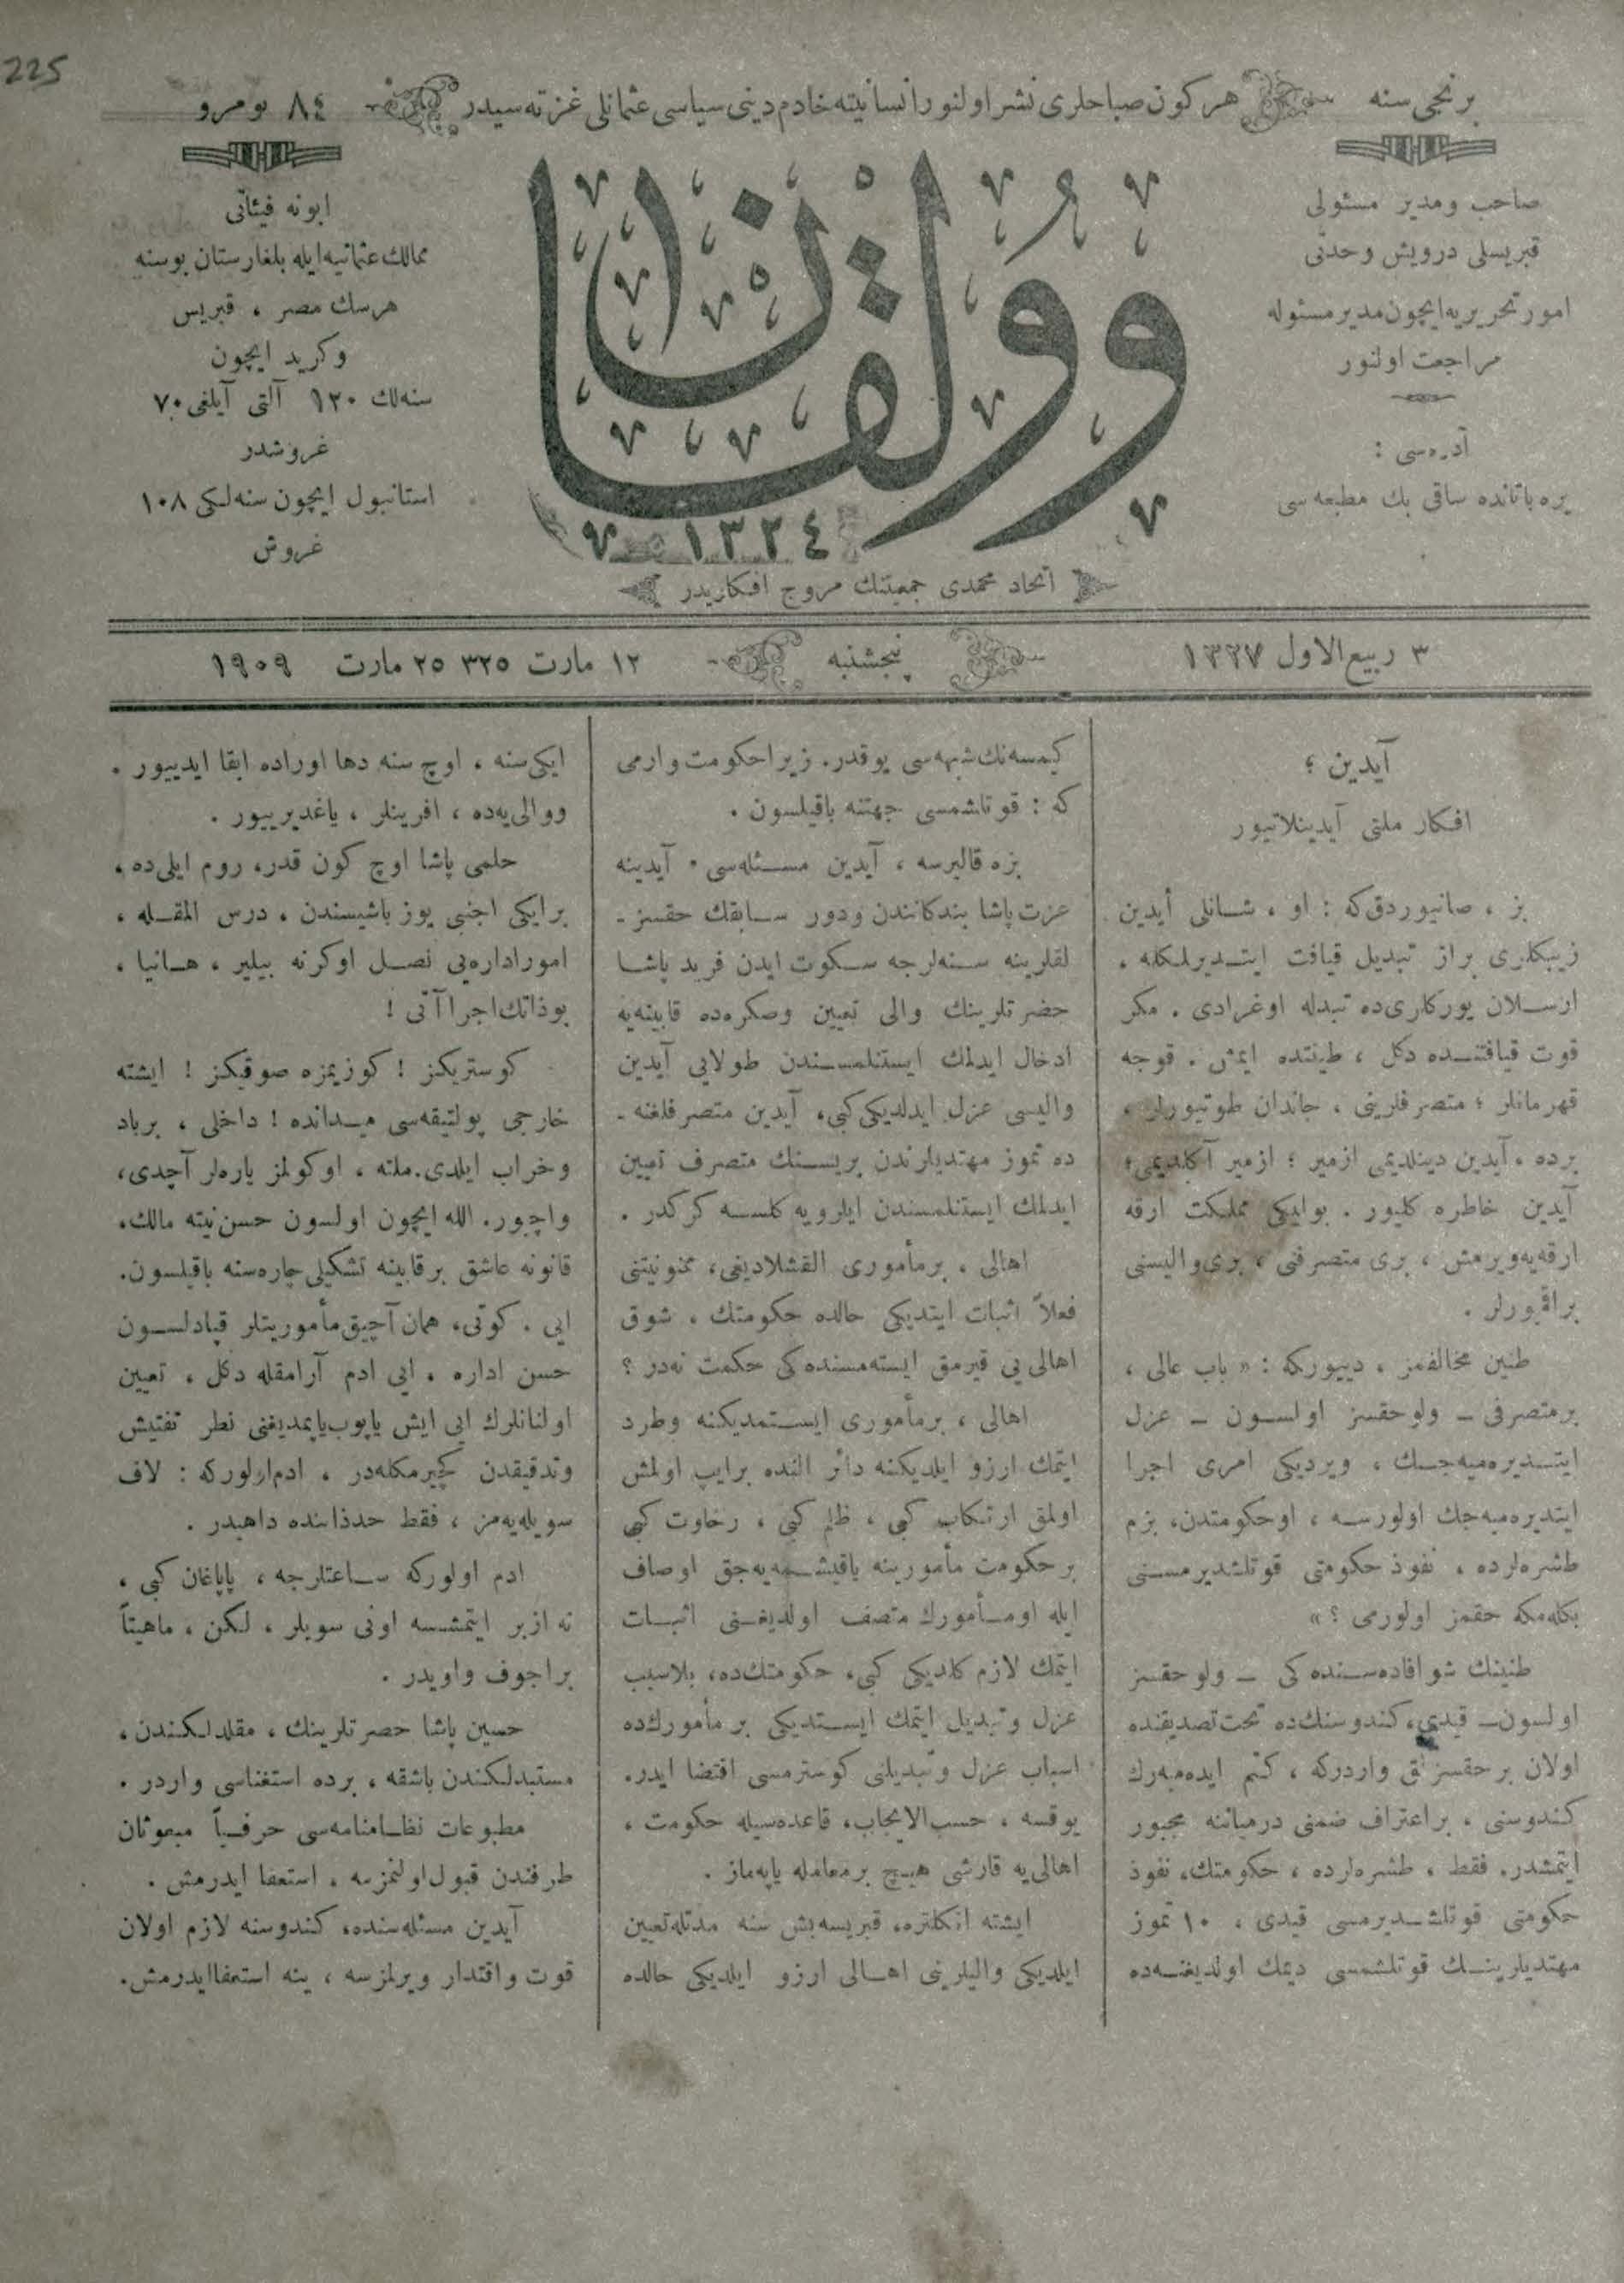 225
برنجی سنه
هر كون صباحلری نشر اولنور انسانیته خادم دینی سیاسی عثمانلی غزته سیدر
٨٤ نومرو
صاحب ومدیر مسئولی
قبریسلی درویش وحدتی
امور تحریریه ایچون مدیر مسئوله
مراجعت اولنور
آدره سی :
یره باتانده ساقی بك مطبعه سی
وولقان
١٣٢٤
اتحاد محمدی جمعیتنك مروج افكاریدر
ابونه فیئاتی
ممالك عثمانیه ایله بلغارستان بوسنه
هرسك مصر ، قبریس
وكرید ایچون
سنه لك ١٢٠ آلتی آیلغی ٧٠
غروشدر
استانبول ایچون سنه لكی ١٠٨
غروش
٣ ربیع الاول ١٣٢٧
پنجشنبه
١٢ مارت ٣٢٥ ٢٥ مارت ١٩٠٩
آیدین ؛
افكار ملتی آیدینلاتیور
بز ، صانیوردق كه : او ، شانلی آیدین
زیبكلری براز تبدیل قیافت ایتدیرلمكله ،
ارسلان یوركلری ده تبدله اوغرادی . مكر
قوت قیافتنده دكل ، طینتده ایمش . قوجه
قهرمانلر ؛ متصرفلرینی ، جاندان طوتیورلر ،
برده ، آیدین دینلدیمی ازمیر ؛ ازمیر آكلدیمی ؛
آیدین خاطره كلیور . بوایكی مملكت ارقه
ارقه یه ویرمش ، بری متصرفنی ، بری والیسنی
براقیورلر .
طنین مخالفمز ، دییوركه : « باب عالی ،
بر متصرفی ـ ولو حقسز اولسون ـ عزل
ایتدیره میه جك ، ویردیكی امری اجرا
ایتدیره میه جك اولورسه ، او حكومتدن، بزم
طشره لرده ، نفوذ حكومتی قوتلشدیرمسنی
بكله مكه حقمز اولورمی ؟ »
طنینك شو افاده سنده كی ـ ولو حقسز
اولسون ـ قیدی، كندوسنك ده تحت تصدیقنده
اولان بر حقسزلق واردركه ، كتم ایده میه رك
كندوسنی ، بر اعتراف ضمنی درمیاننه مجبور
ایتمشدر. فقط ، طشره لرده ، حكومتك، نفوذ
حكومتی قوتلشدیرمسی قیدی ، ١٠ تموز
مهتدیلرینك قوتلشمسی دیمك اولدیغنه ده
كیمسه نك شبهه سی یوقدر. زیرا حكومت وارمی
كه : قوتلشمسی جهتنه باقیلسون .
بزه قالیرسه ، آیدین مسئله سی ، آیدینه
عزت پاشا بندكانندن ودور سابقك حقسز ـ
لقلرینه سنه لرجه سكوت ایدن فرید پاشا
حضرتلرینك والی تعیین وصكره ده قابینه یه
ادخال ایدلمك ایستنلمسندن طولایی آیدین
والیسی عزل ایدلدیكی كبی، آیدین متصرفلغنه ـ
ده تموز مهتدیلرندن بریسنك متصرف تعیین
ایدلمك ایستنلمسندن ایلرویه كلسه كركدر .
اهالی ، بر مأموری القشلادیغی، ممنونیتنی
فعلاً اثبات ایتدیكی حالده حكومتك ، شوق
اهالی یی قیرمق ایسته مسنده كی حكمت نه در ؟
اهالی ، بر مأموری ایستمدیكنه وطرد
ایتمك ارزو ایلدیكنه دائر النده برایپ اولمش
اولمق ارتكاب كبی ، ظلم كبی ، رخاوت كبی
بر حكومت مأمورینه یاقیشمیه یه جق اوصاف
ایله او مأمورك متصف اولدیغنی اثبات
ایتمك لازم كلدیكی كبی، حكومتك ده، بلاسبب
عزل وتبدیل ایتمك ایستدیكی بر مأمورك ده
اسباب عزل وتبدیلنی كوسترمسی اقتضا ایدر.
یوقسه ، حسب الایجاب، قاعده سیله حكومت ،
اهالی یه قارشی هیچ بر معامله یاپه ماز .
ایشته انكلتره، قبریسه بش سنه مدتله تعیین
ایلدیكی والیلرینی اهالی ارزو ایلدیكی حالده
ایكی سنه ، اوچ سنه دها اوراده ابقا ایدییور .
ووالی یه ده ، افرینلر ، یاغدیرییور .
حلمی پاشا اوچ كون قدر، روم ایلی ده ،
برایكی اجنبی یوز باشیسندن ، درس المقله ،
امور اداره یی نصل اوكرنه بیلیر ، هانیا ،
بوذاتك اجراآتی !
كوستریكز ! كوزیمزه صوقیكز ! ایشته
خارجی پولتیقه سی میدانده ! داخلی ، برباد
وخراب ایلدی. ملته ، اوكولمز یاره لر آچدی،
واچیور. الله ایچون اولسون حسن نیته مالك،
قانونه عاشق بر قابینه تشكیلی چاره سنه باقیلسون.
ایی . كوتی، همان آچیق مأموریتلر قپادلسون
حسن اداره ، ایی ادم آرامقله دكل ، تعیین
اولنانلرك ایی ایش یاپوب یاپمدیغنی نظر تفتیش
وتدقیقدن كچیرمكله در ، ادم ارلوركه : لاف
سویله یه مز ، فقط حدذاتنده داهیدر .
ادم اولوركه ساعتلرجه ، پاپاغان كبی ،
نه ازبر ایتمشسه اونی سویلر ، لكن ، ماهیتاً
براجوف واویدر .
حسین پاشا حضرتلرینك ، مقلدلكندن ،
مستبدلكندن باشقه ، برده استغناسی واردر .
مطبوعات نظامنامه سی حرفیاً مبعوثان
طرفندن قبول اولنمزسه ، استعفا ایدرمش .
آیدین مسئله سنده، كندوسنه لازم اولان
قوت واقتدار ویرلمزسه ، ینه استعفا ایدرمش.